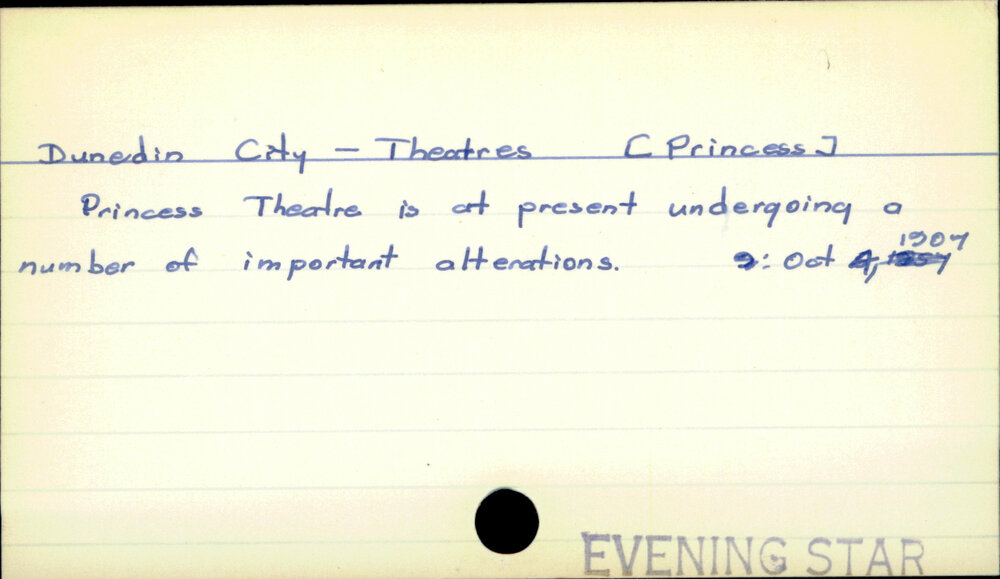 Dunedin City - Theatres [Princess]
Princess Theatre is at present undergoing a
number of important alterations. 2: Oct 4, 1907
EVENING STAR